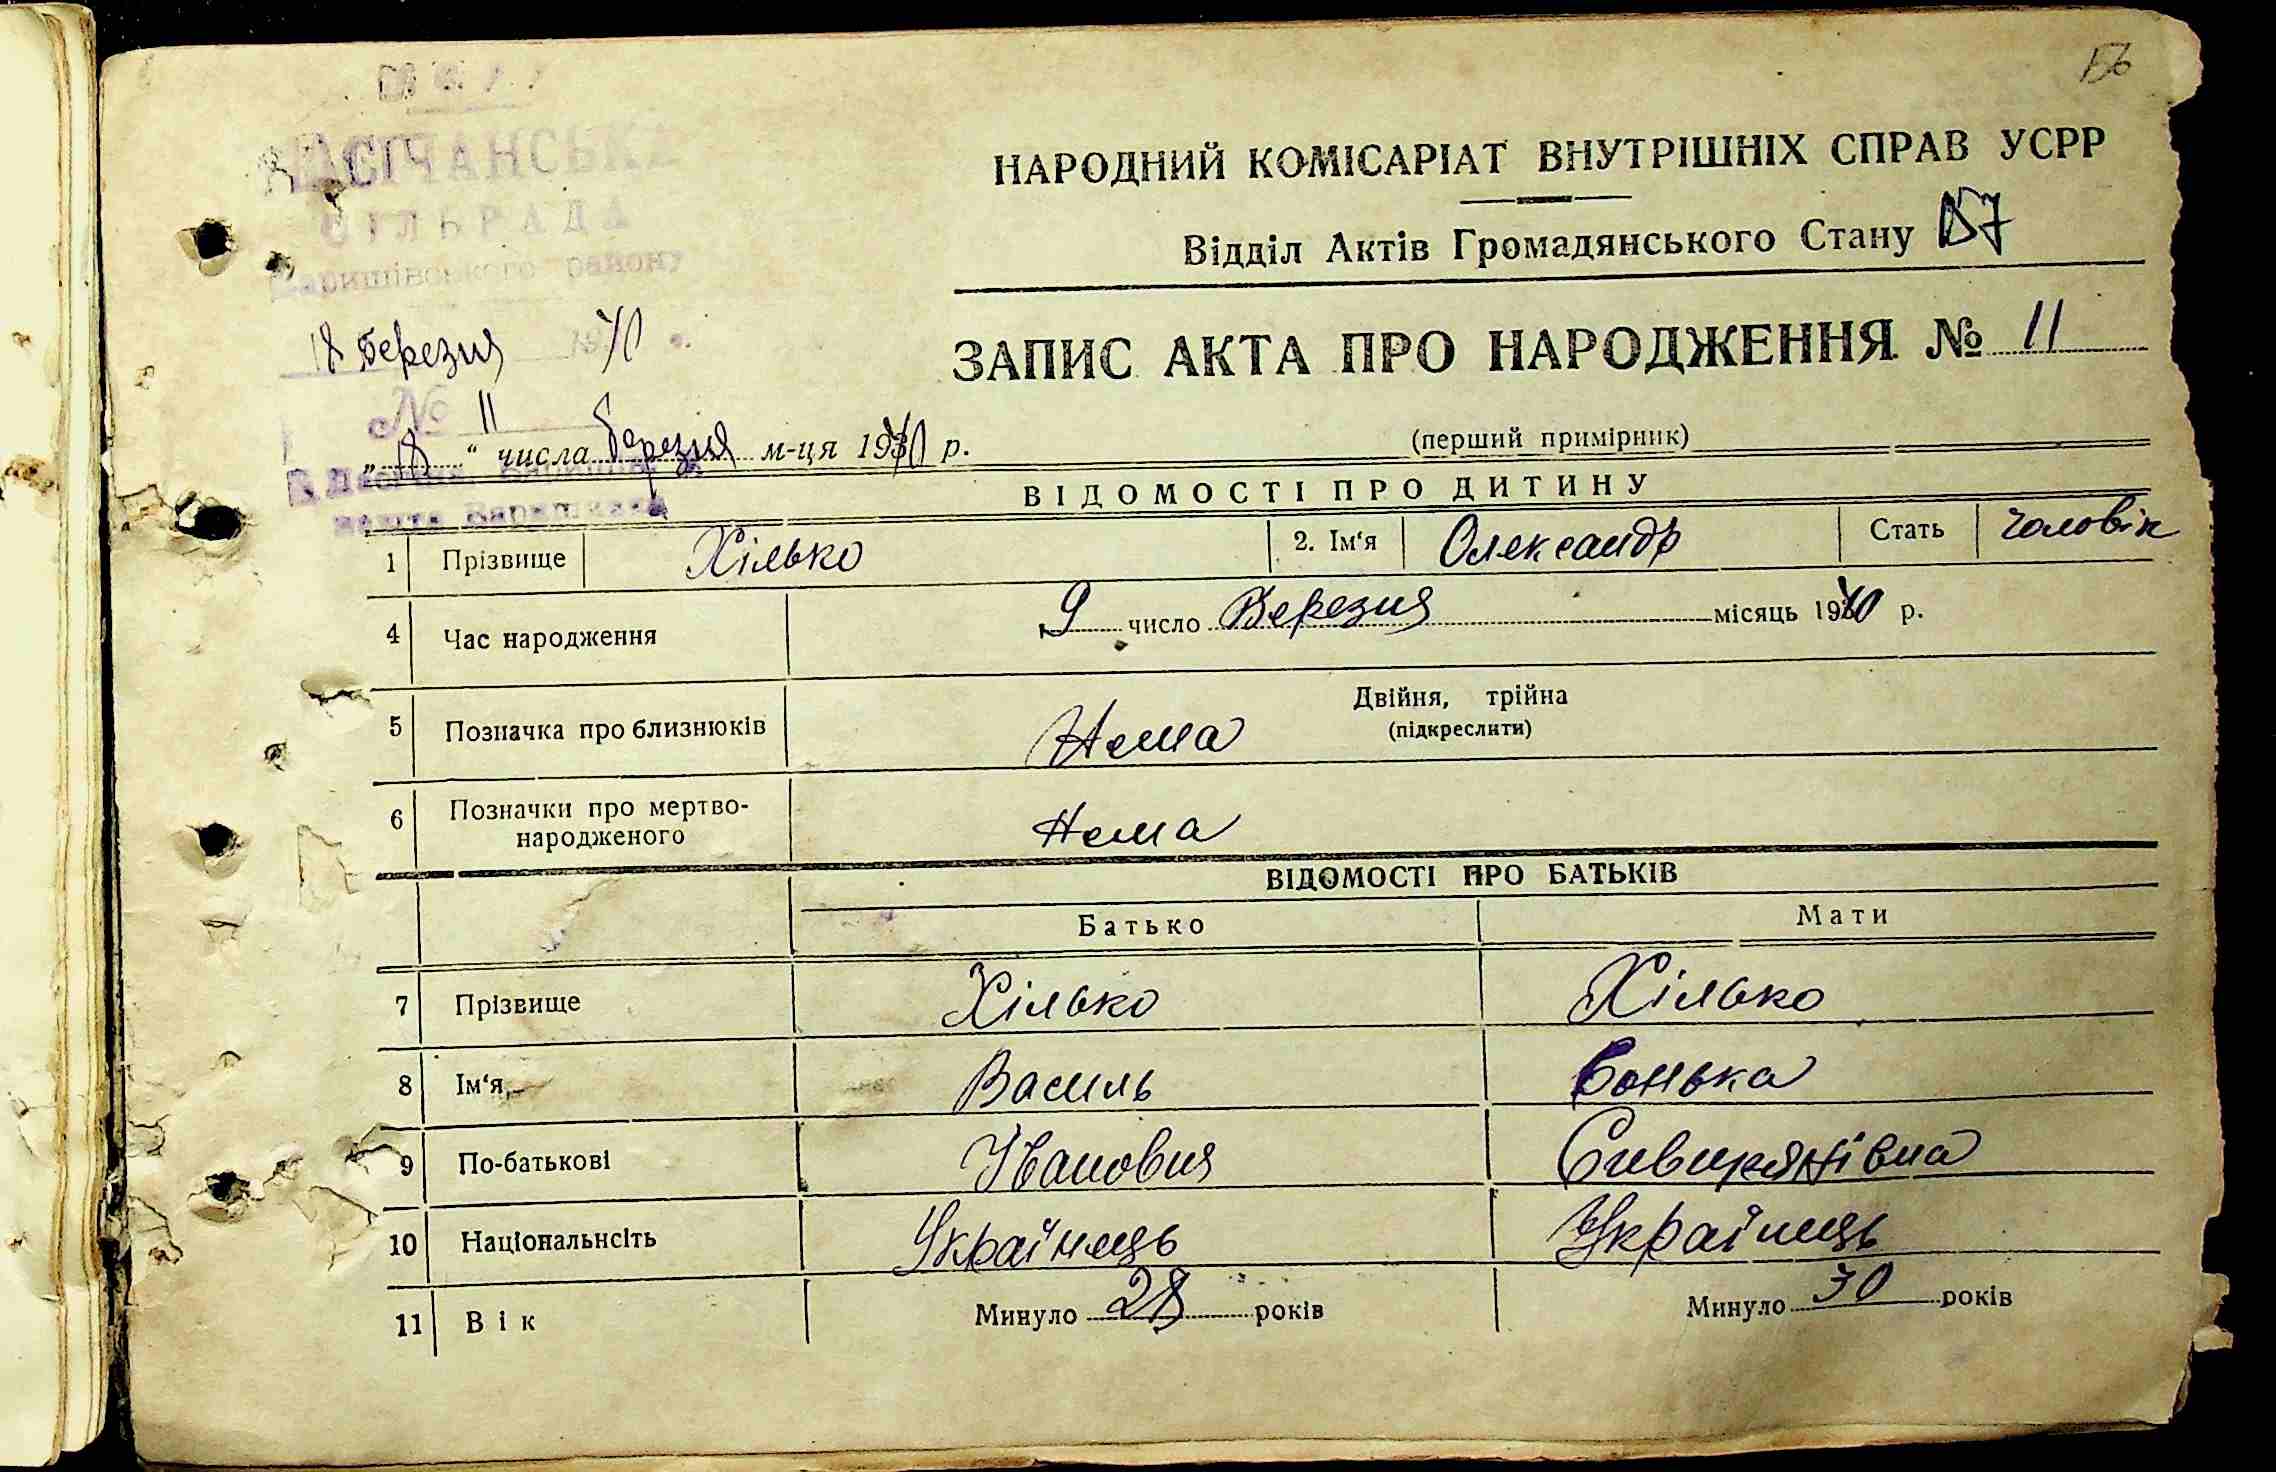 156
У.С.Р.Р.
ПАСІЧАНСЬКА
СІЛЬРАДА
Баришівського району
18 березня 1940 р.
№ 11
пошта Баришівка
НАРОДНИЙ КОМІСАРІАТ ВНУТРІШНІХ СПРАВ УСРР
Відділ Актів Громадянського Стану 157
ЗАПИС АКТА ПРО НАРОДЖЕННЯ № 11
(перший примірник)
„ 18 “ числа березня м-ця 1940 р.
ВІДОМОСТІ ПРО ДИТИНУ
1 Прізвище Хілько 2. Ім'я Олександр Стать Чоловік
4 Час народження 9 число Березня місяць 1940 р.
5 Позначка про близнюків Нема Двійня, трійна
(підкреслити)
6 Позначки про мертво-
народженого Нема
ВІДОМОСТІ ПРО БАТЬКІВ
Батько Мати
7 Прізвище Хілько Хілько
8 Ім'я Василь Сонька
9 По-батькові Івановия
10 Національнсіть Українець Українець
11 Вік Минуло 28 років Минуло 30 років